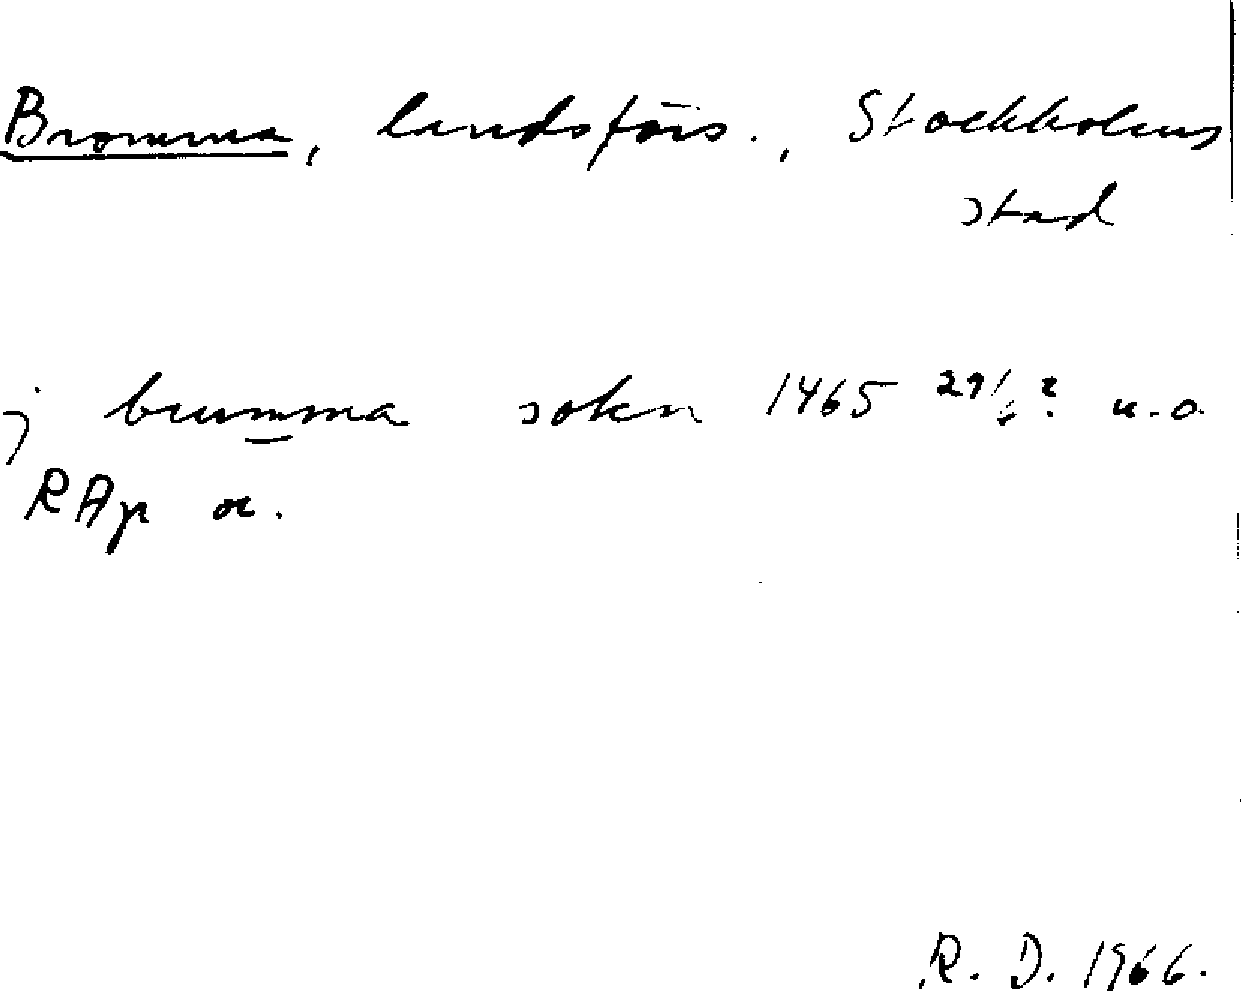 Bromma, landsförs., Stockholms
stad
j brumma sokn 1465 29/6? u.o.
RAp or.
R. D. 1966.